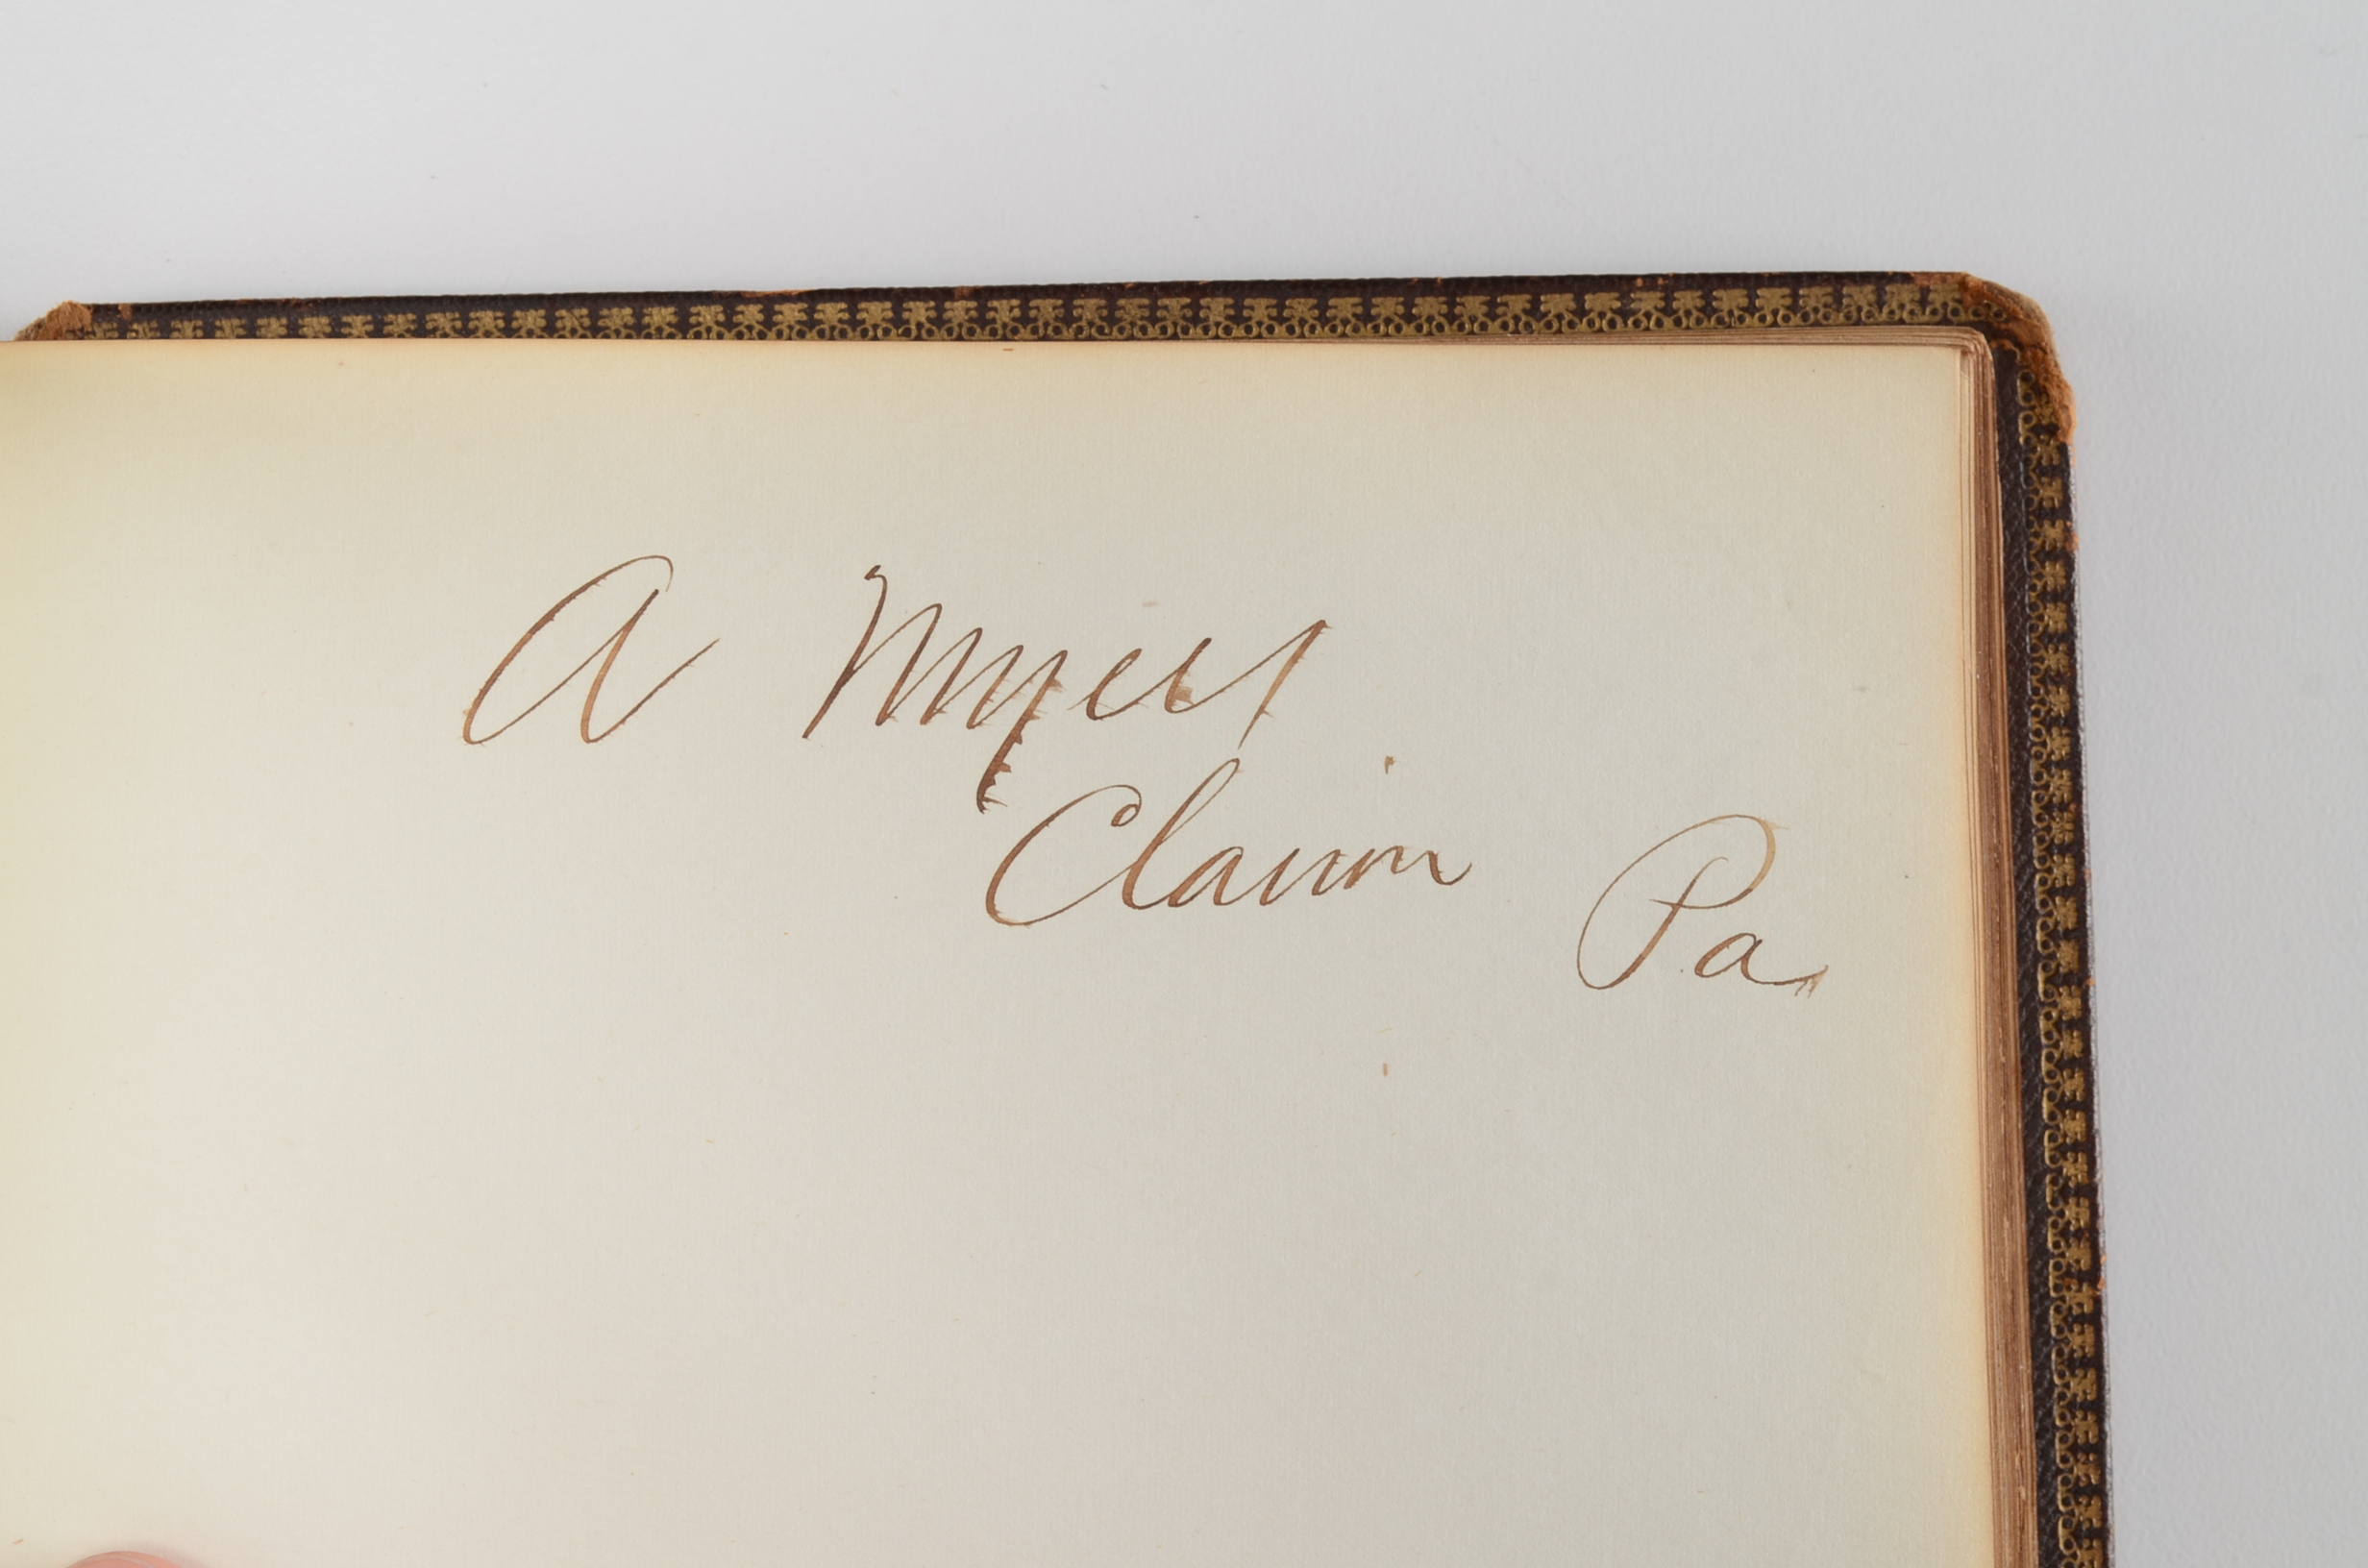 A Myers
Clarion Pa.